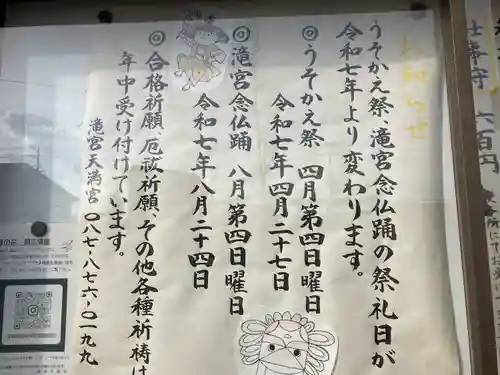 お知らせ
うそかえ祭、滝宮念仏踊の祭礼日が
令和七年より変わります。
◎うそかえ祭　四月第四日曜日
令和七年四月二十七日
◎滝宮念仏踊　八月第四日曜日
令和七年八月二十四日
◎合格祈願、厄祓祈願、その他各種祈祷は
年中受け付けています。
滝宮天満宮　〇八七-八七六-〇一九九
仕事守　六百円